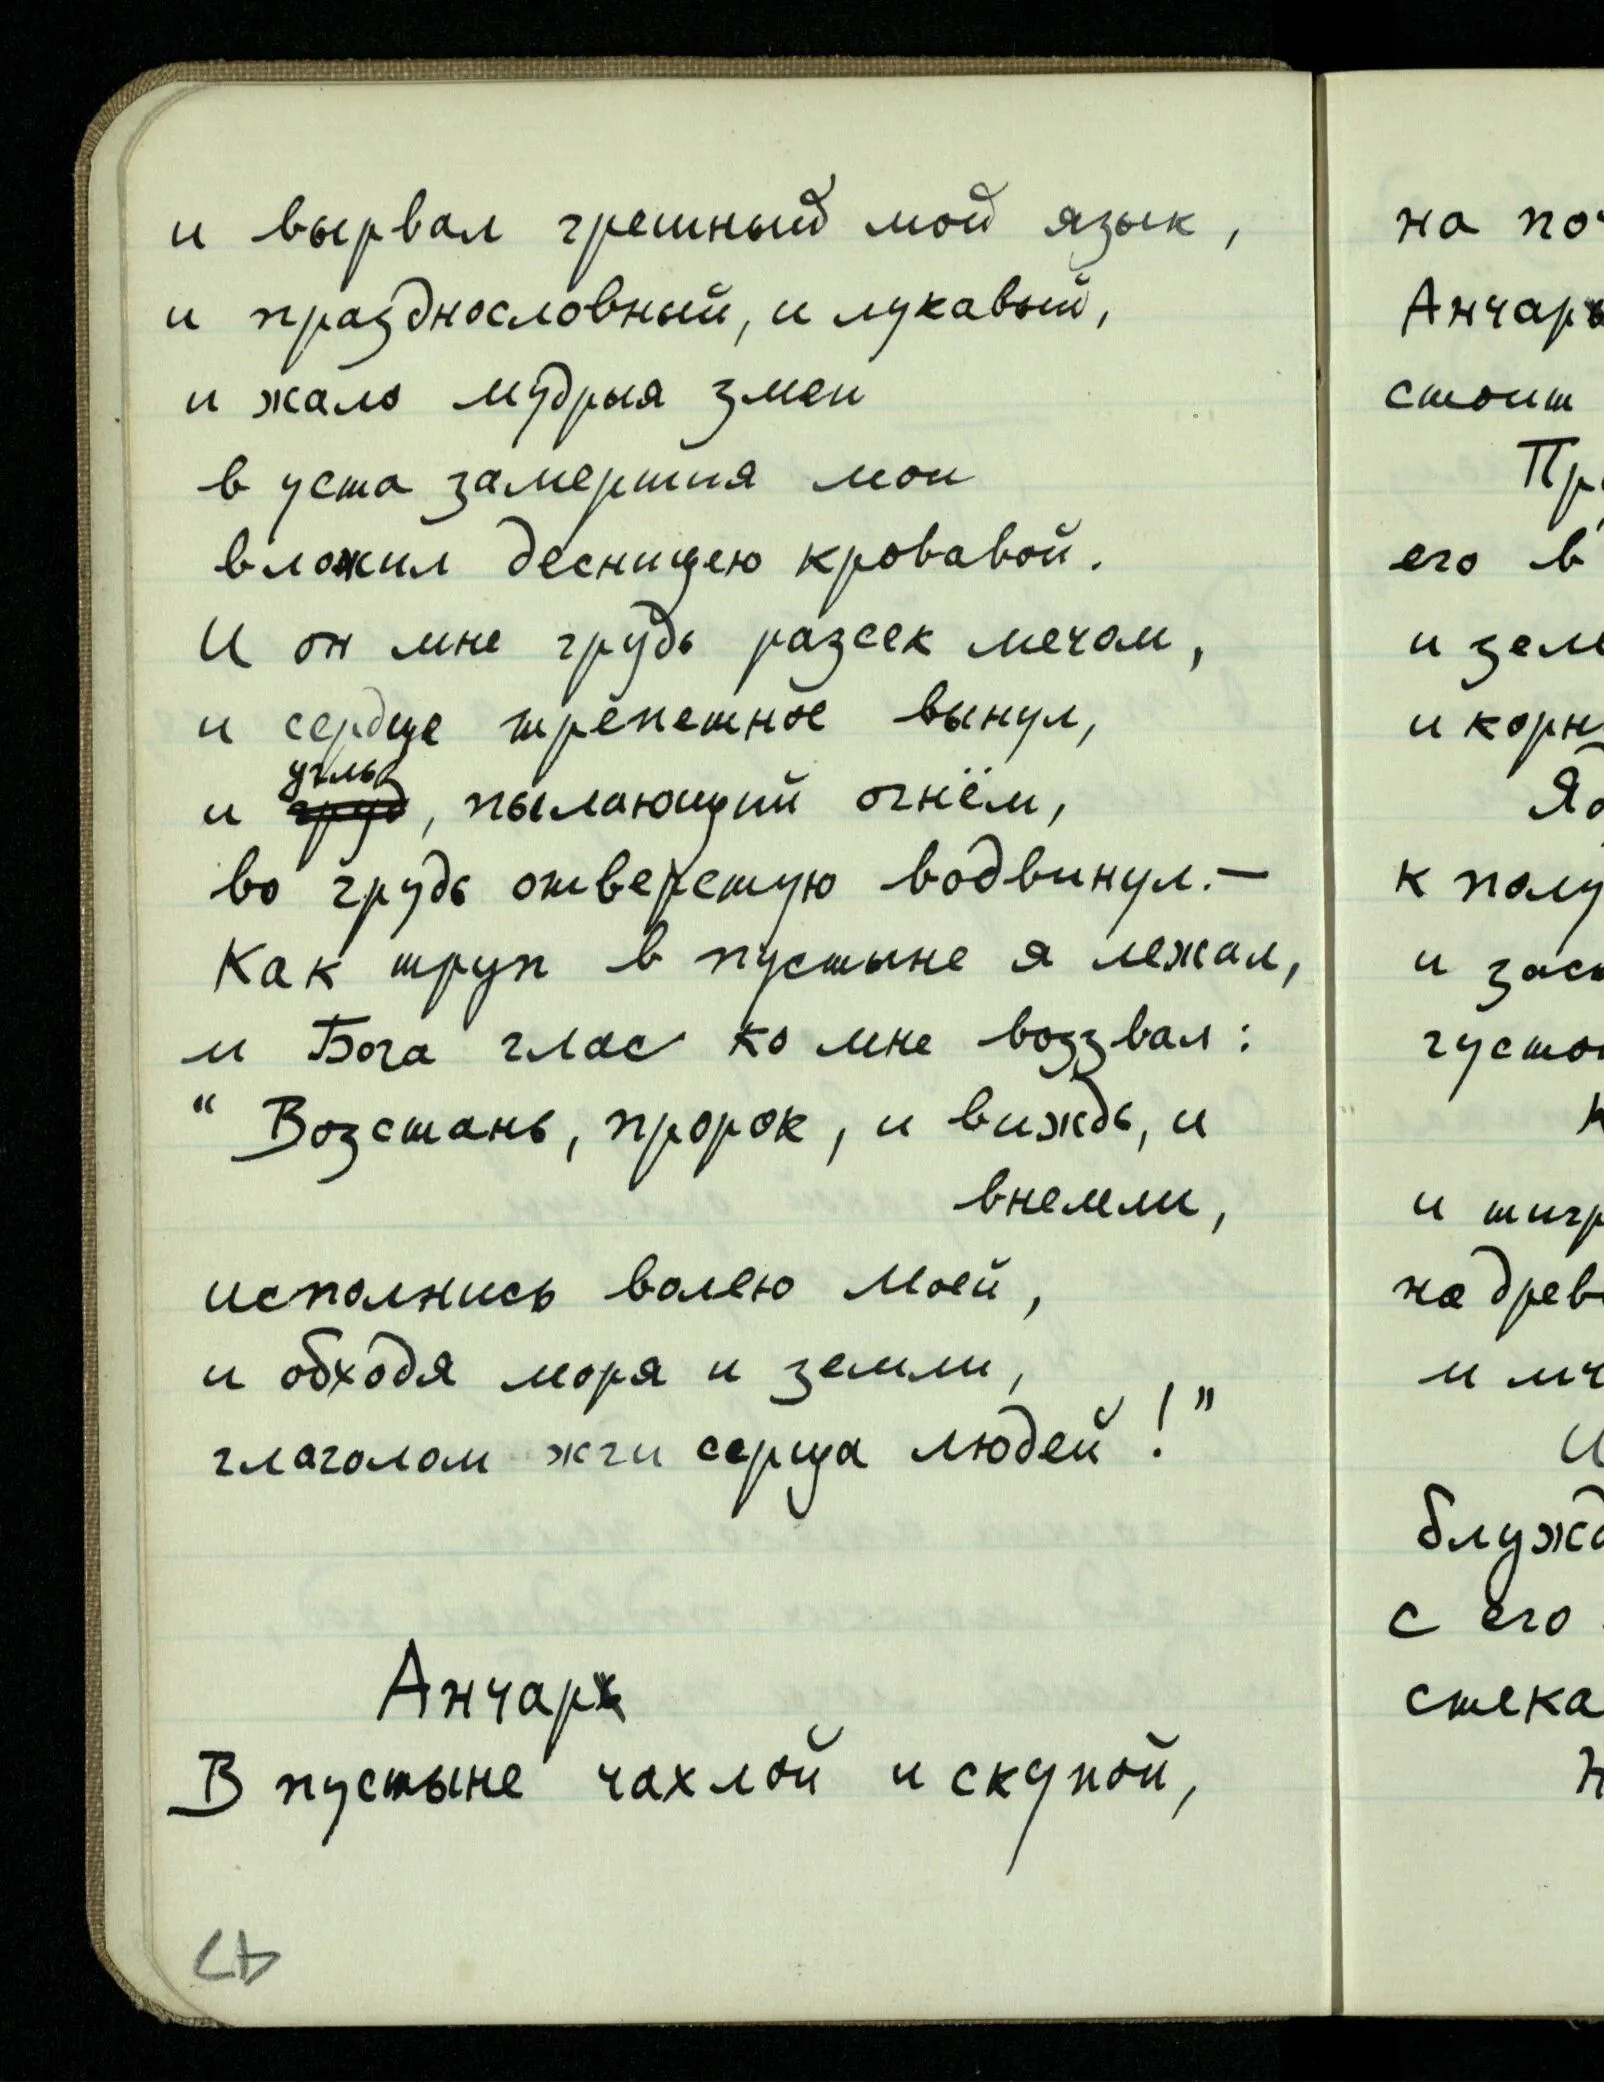 и вырвал грешный мой язык,
и празднословный, и лукавый,
и жало мудрыя змеи
в уста замершия мои
вложил десницею кровавой.
И он мне грудь разсек мечом,
и сердце трепетное вынул,
угль
и груд, пылающий огнём,
во грудь отверстую водвинул. —
Как труп в пустыне я лежал,
и Бога глас ко мне воззвал:
“ Возстань, пророк, и виждь, и
внемли,
исполнись волею Моей,
и обходя моря и земли,
глаголом жги сердца людей!”
Анчар
В пустыне чахлой и скупой,
47
на поч
Анчаръ
стоит
Пр
его в
и земл
и корн
Яд
к полу
и заст
густо
К
и тигр
на древ
и мч
И
блужд
с его
стека
Н